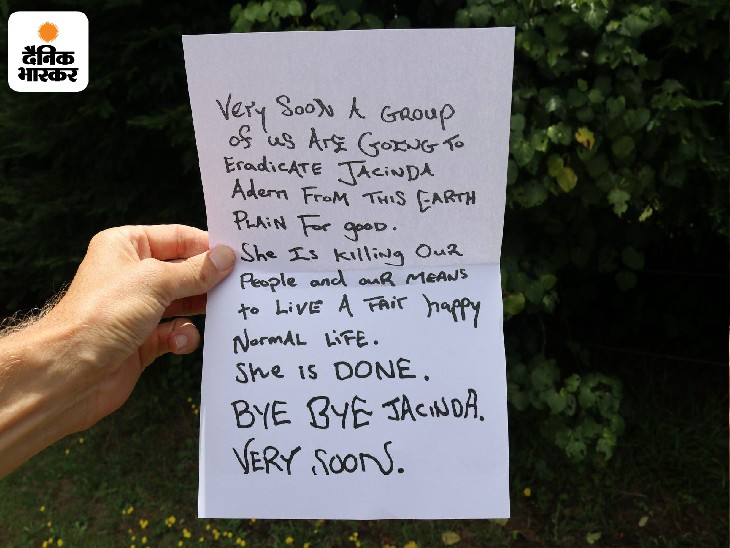 दैनिक
भास्कर
Very Soon A GROUP
of us ArE GoING To
EradicATE JACINDA
Adern FroM THIS EARTH
PLAiN For good.
She Is killing Our
People and ouR MEANS
to LiVE A FAIr happy
NorMAL LiFE.
She is DONE.
BYE BYE JACINDA.
VERY SOON.